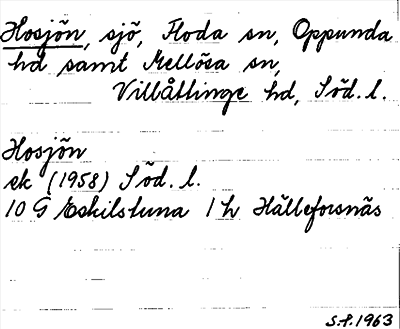 Hosjön, sjö, Floda sn, Oppunda
hd samt Mellösa sn,
Villåttinge hd, Söd. l.
Hosjön
ek (1958) Söd. l.
10 G Eskilstuna 1 h Hälleforsnäs
S.f. 1963